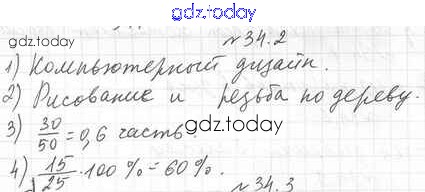 gdz.today
№34.2
gdz.today
1) Компьютерный дизайн.
2) Рисование и резьба по дереву.
3) 30/50 = 0,6 часть
gdz.today
4) 15/25 · 100 % = 60 %.
№34.3